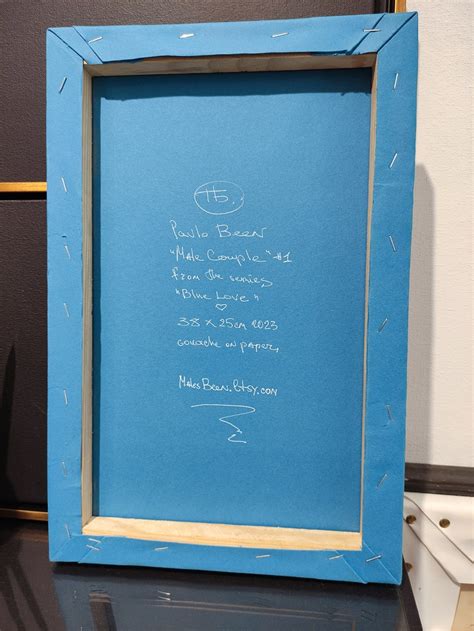 Pavlo Been
"Male Couple" #1
from the series
"Blue Love"
38 x 25cm 2023
gouache on paper,
MalesBeen.Etsy.com